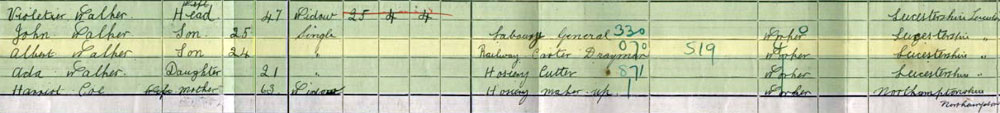 Violetier Walker Head 47 Widow 25 4 4 Leicestershire
John Walker Son 25 Single Labourer General 330 Worker Leicestershire "
Albert Walker Son 24 " Railway Carter Drayman 070 519 Worker Leicestershire "
Ada Walker Daughter 21 " Hosiery Cutter 871 Worker Leicestershire "
Harriot Coe Mother 63 Widow Hosiery maker-up Worker Northamptonshire
Northampton